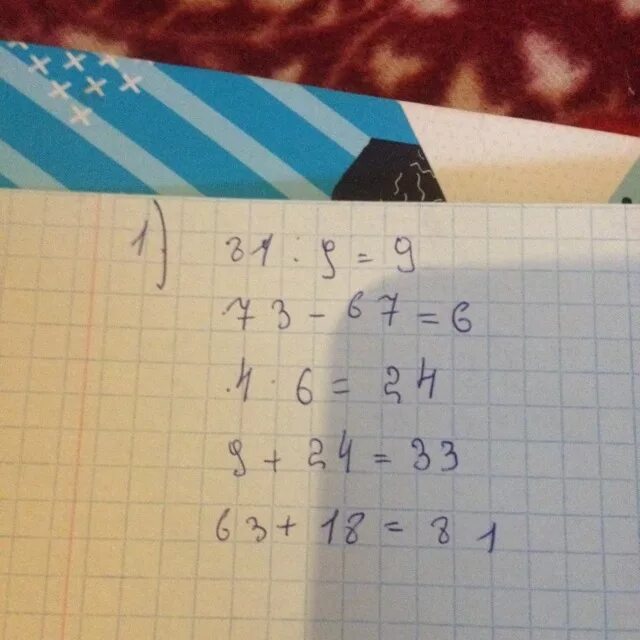 1) 81 : 9 = 9
73 - 67 = 6
4 · 6 = 24
9 + 24 = 33
63 + 18 = 81